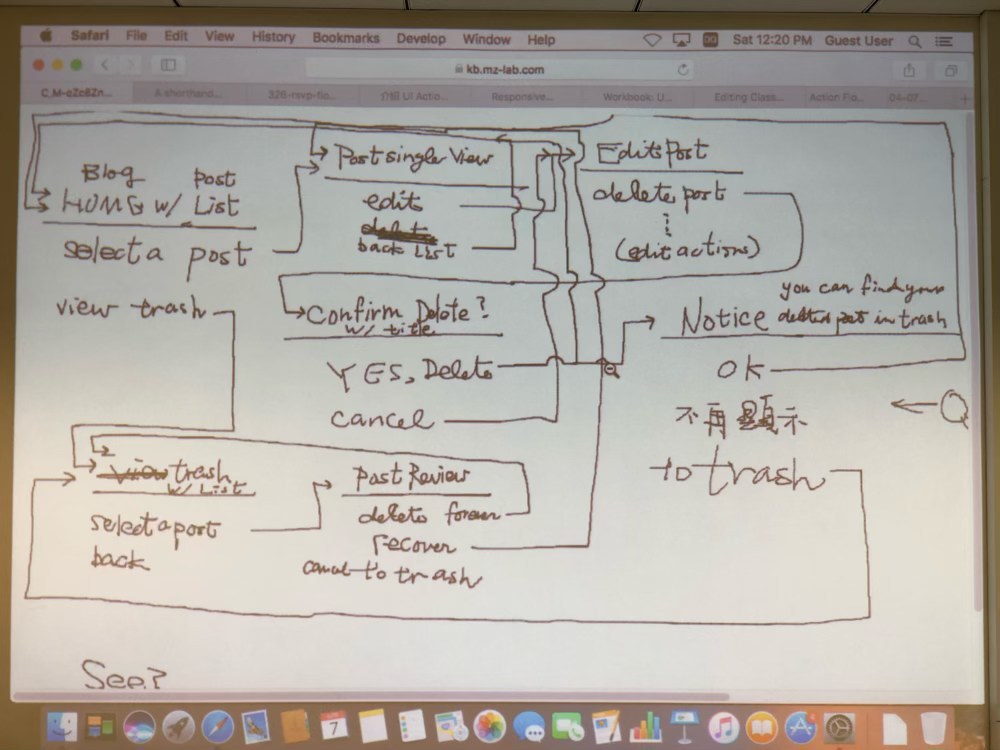 Safari File Edit View History Bookmarks Develop Window Help Sat 12:20 PM Guest User
kb.mz-lab.com
C_M-oZc6Zn... A shorthand... 介紹 UI Actio... Responsive... Workbook: U... Editing Class... Action Flo... 04-07...
Blog Post
HOME w/ List
select a post
view trash
Post single View
edit
back List
Edit Post
delete post
(edit actions)
Confirm Delete?
w/ title
YES, Delete
cancel
Notice you can find your
deleted post in trash
OK
不再顯示
to trash
Q
view trash
w/ List
select a post
back
Post Review
delete forever
recover
cancel to trash
See?
APR
7